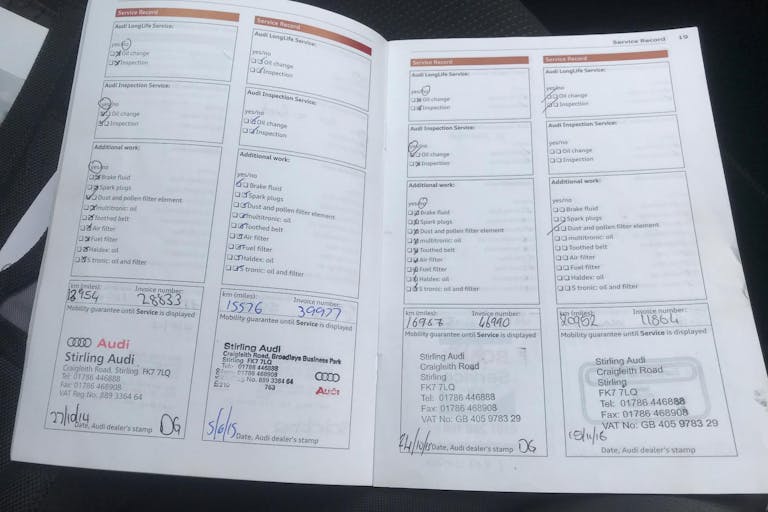 Service Record
Audi LongLife Service:
yes/no
Oil change
Inspection
Audi Inspection Service:
yes/no
Oil change
Inspection
Additional work:
yes/no
Brake fluid
Spark plugs
Dust and pollen filter element
multitronic: oil
Toothed belt
Air filter
Fuel filter
Haldex: oil
S tronic: oil and filter
km (miles):
Invoice number:
28633
Mobility guarantee until Service is displayed
Audi
Stirling Audi
Craigleith Road, Stirling FK7 7LQ
Tel: 01786 446888
Fax: 01786 468908
VAT Reg No. 899 3364 64
27/10/14
DG
Date, Audi dealer's stamp
Service Record
Audi LongLife Service:
yes/no
Oil change
Inspection
Audi Inspection Service:
yes/no
Oil change
Inspection
Additional work:
yes/no
Brake fluid
Spark plugs
Dust and pollen filter element
multitronic: oil
Toothed belt
Air filter
Fuel filter
Haldex: oil
S tronic: oil and filter
km (miles):
Invoice number:
15576
39977
Mobility guarantee until Service is displayed
Stirling Audi
Craigleith Road, Broadleys Business Park
Stirling FK7 7LQ
01786 446888
01786 468908
No. 899 3364 64
763
Audi
5/6/15
Date, Audi dealer's stamp
Service Record 19
Service Record
Audi LongLife Service:
yes/no
Oil change
Inspection
Audi Inspection Service:
yes/no
Oil change
Inspection
Additional work:
yes/no
Brake fluid
Spark plugs
Dust and pollen filter element
multitronic: oil
Toothed belt
Air filter
Fuel filter
Haldex: oil
S tronic: oil and filter
km (miles):
Invoice number:
46990
Mobility guarantee until Service is displayed
Stirling Audi
Craigleith Road
Stirling
FK7 7LQ
Tel: 01786 446888
Fax: 01786 468908
VAT No: GB 405 9783 29
24/10/15
DG
Date, Audi dealer's stamp
Service Record
Audi LongLife Service:
yes/no
Oil change
Inspection
Audi Inspection Service:
yes/no
Oil change
Inspection
Additional work:
yes/no
Brake fluid
Spark plugs
Dust and pollen filter element
multitronic: oil
Toothed belt
Air filter
Fuel filter
Haldex: oil
S tronic: oil and filter
km (miles):
Invoice number:
20952
11864
Mobility guarantee until Service is displayed
Stirling Audi
Craigleith Road
Stirling
FK7 7LQ
Tel: 01786 446888
Fax: 01786 468908
VAT No: GB 405 9783 29
Date, Audi dealer's stamp